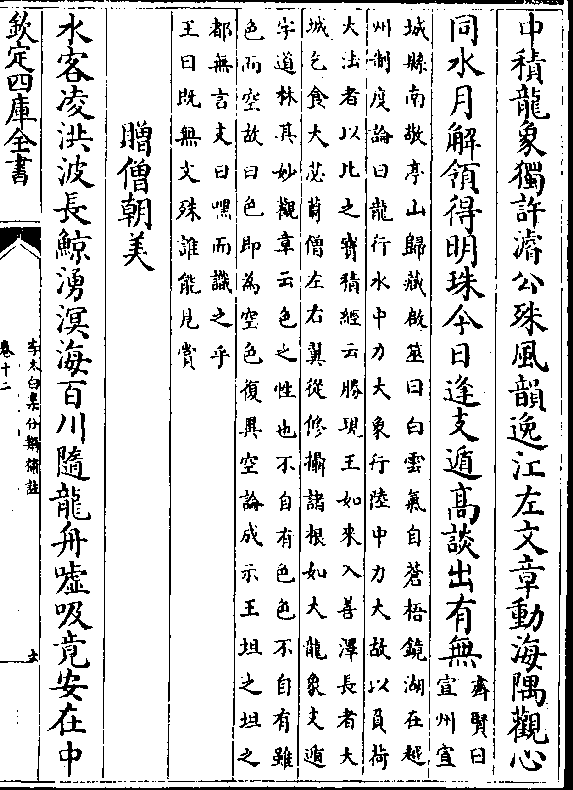 中積龍象獨許濬公殊風韻逸江左文章動海隅觀心
同水月解領得明珠今日逢支遁髙談出有無
齊賢曰
宣州宣
城縣南敬亭山歸藏啟筮曰白雲氣自蒼梧鏡湖在越
州制度論曰龍行水中力大象行陸中力大故以負荷
大法者以比之寶積經云勝現王如來入善澤長者大
城乞食大苾蒭僧左右翼從修攝諸根如大龍象支遁
字道林其妙觀章云色之性也不自有色色不自有雖
色而空故曰色即為空色復異空論成示王坦之坦之
都無言支曰嘿而識之乎
王曰既無文殊誰能見賞
贈僧朝美
水客凌洪波長鯨湧溟海百川隨龍舟噓吸竟安在中
欽定四庫全書
李太白集分類補註
卷十二